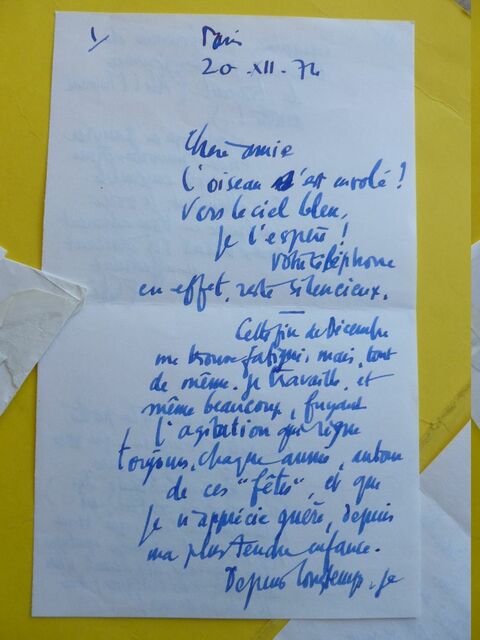 1/
Paris
20-XII-74
Chère amie
L'oiseau s'est envolé !
Vers le ciel bleu,
je l'espère !
Votre téléphone
en effet, reste silencieux.
Cette fin de Décembre
me trouve fatigué, mais, tout
de même, je travaille, et
même beaucoup, fuyant
l'agitation qui règne
toujours, chaque année, autour
de ces "fêtes", et que
je n'apprécie guère, depuis
ma plus tendre enfance.
Depuis longtemps, je